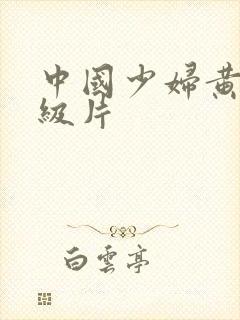 中國少婦黃
級片
白雲亭